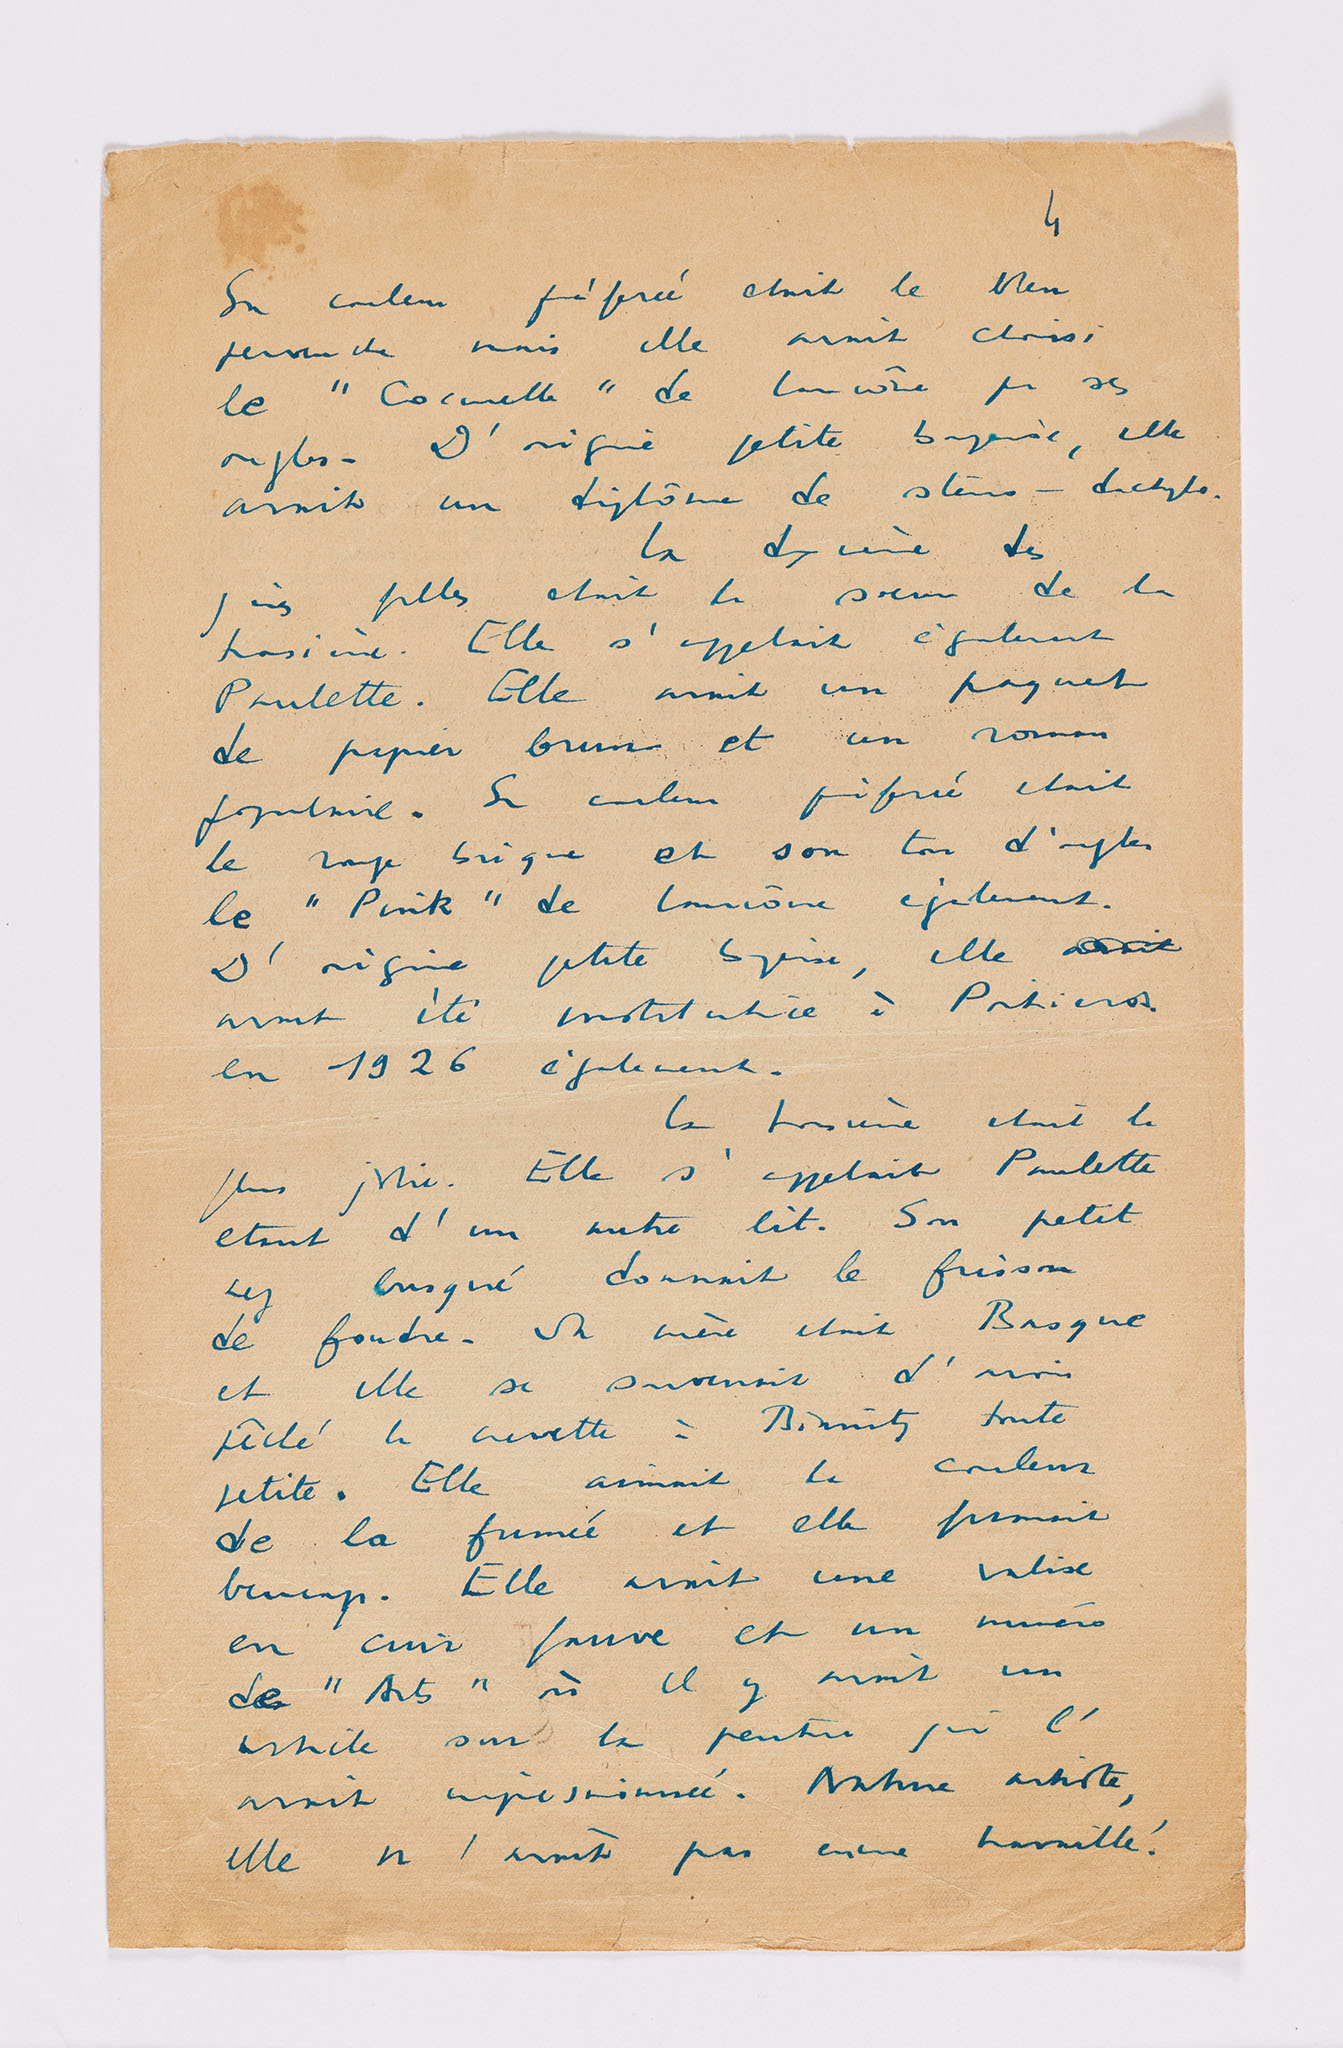 4
Sa couleur préférée était le bleu
pervenche mais elle avait choisi
le "Coccinelle" de Lancôme pr ses
ongles. D'origine petite bourgeoise, elle
avait un diplôme de sténo-dactylo.
La deuxième des
jeunes filles était la soeur de la
troisième. Elle s'appelait également
Paulette. Elle avait un paquet
de papier brun et un roman
populaire. Sa couleur préférée était
le rouge brique et son ton d'ongles
le "Pink" de Lancôme également.
D'origine petite bourgeoise, elle avait
avait été institutrice à Poitiers
en 1926 également.
La troisième était la
plus jolie. Elle s'appelait Paulette
étant d'un autre lit. Son petit
nez busqué donnait le frisson
de foudre. Sa mère était Basque
et elle se souvenait d'avoir
pêché la crevette à Biarritz toute
petite. Elle aimait la couleur
de la fumée et elle fumait
beaucoup. Elle avait une valise
en cuir fauve et un numéro
de "Arts" où il y avait un
article sur la peinture qui l'
avait impressionnée. Nature artiste,
elle n'avait pas encore travaillé.